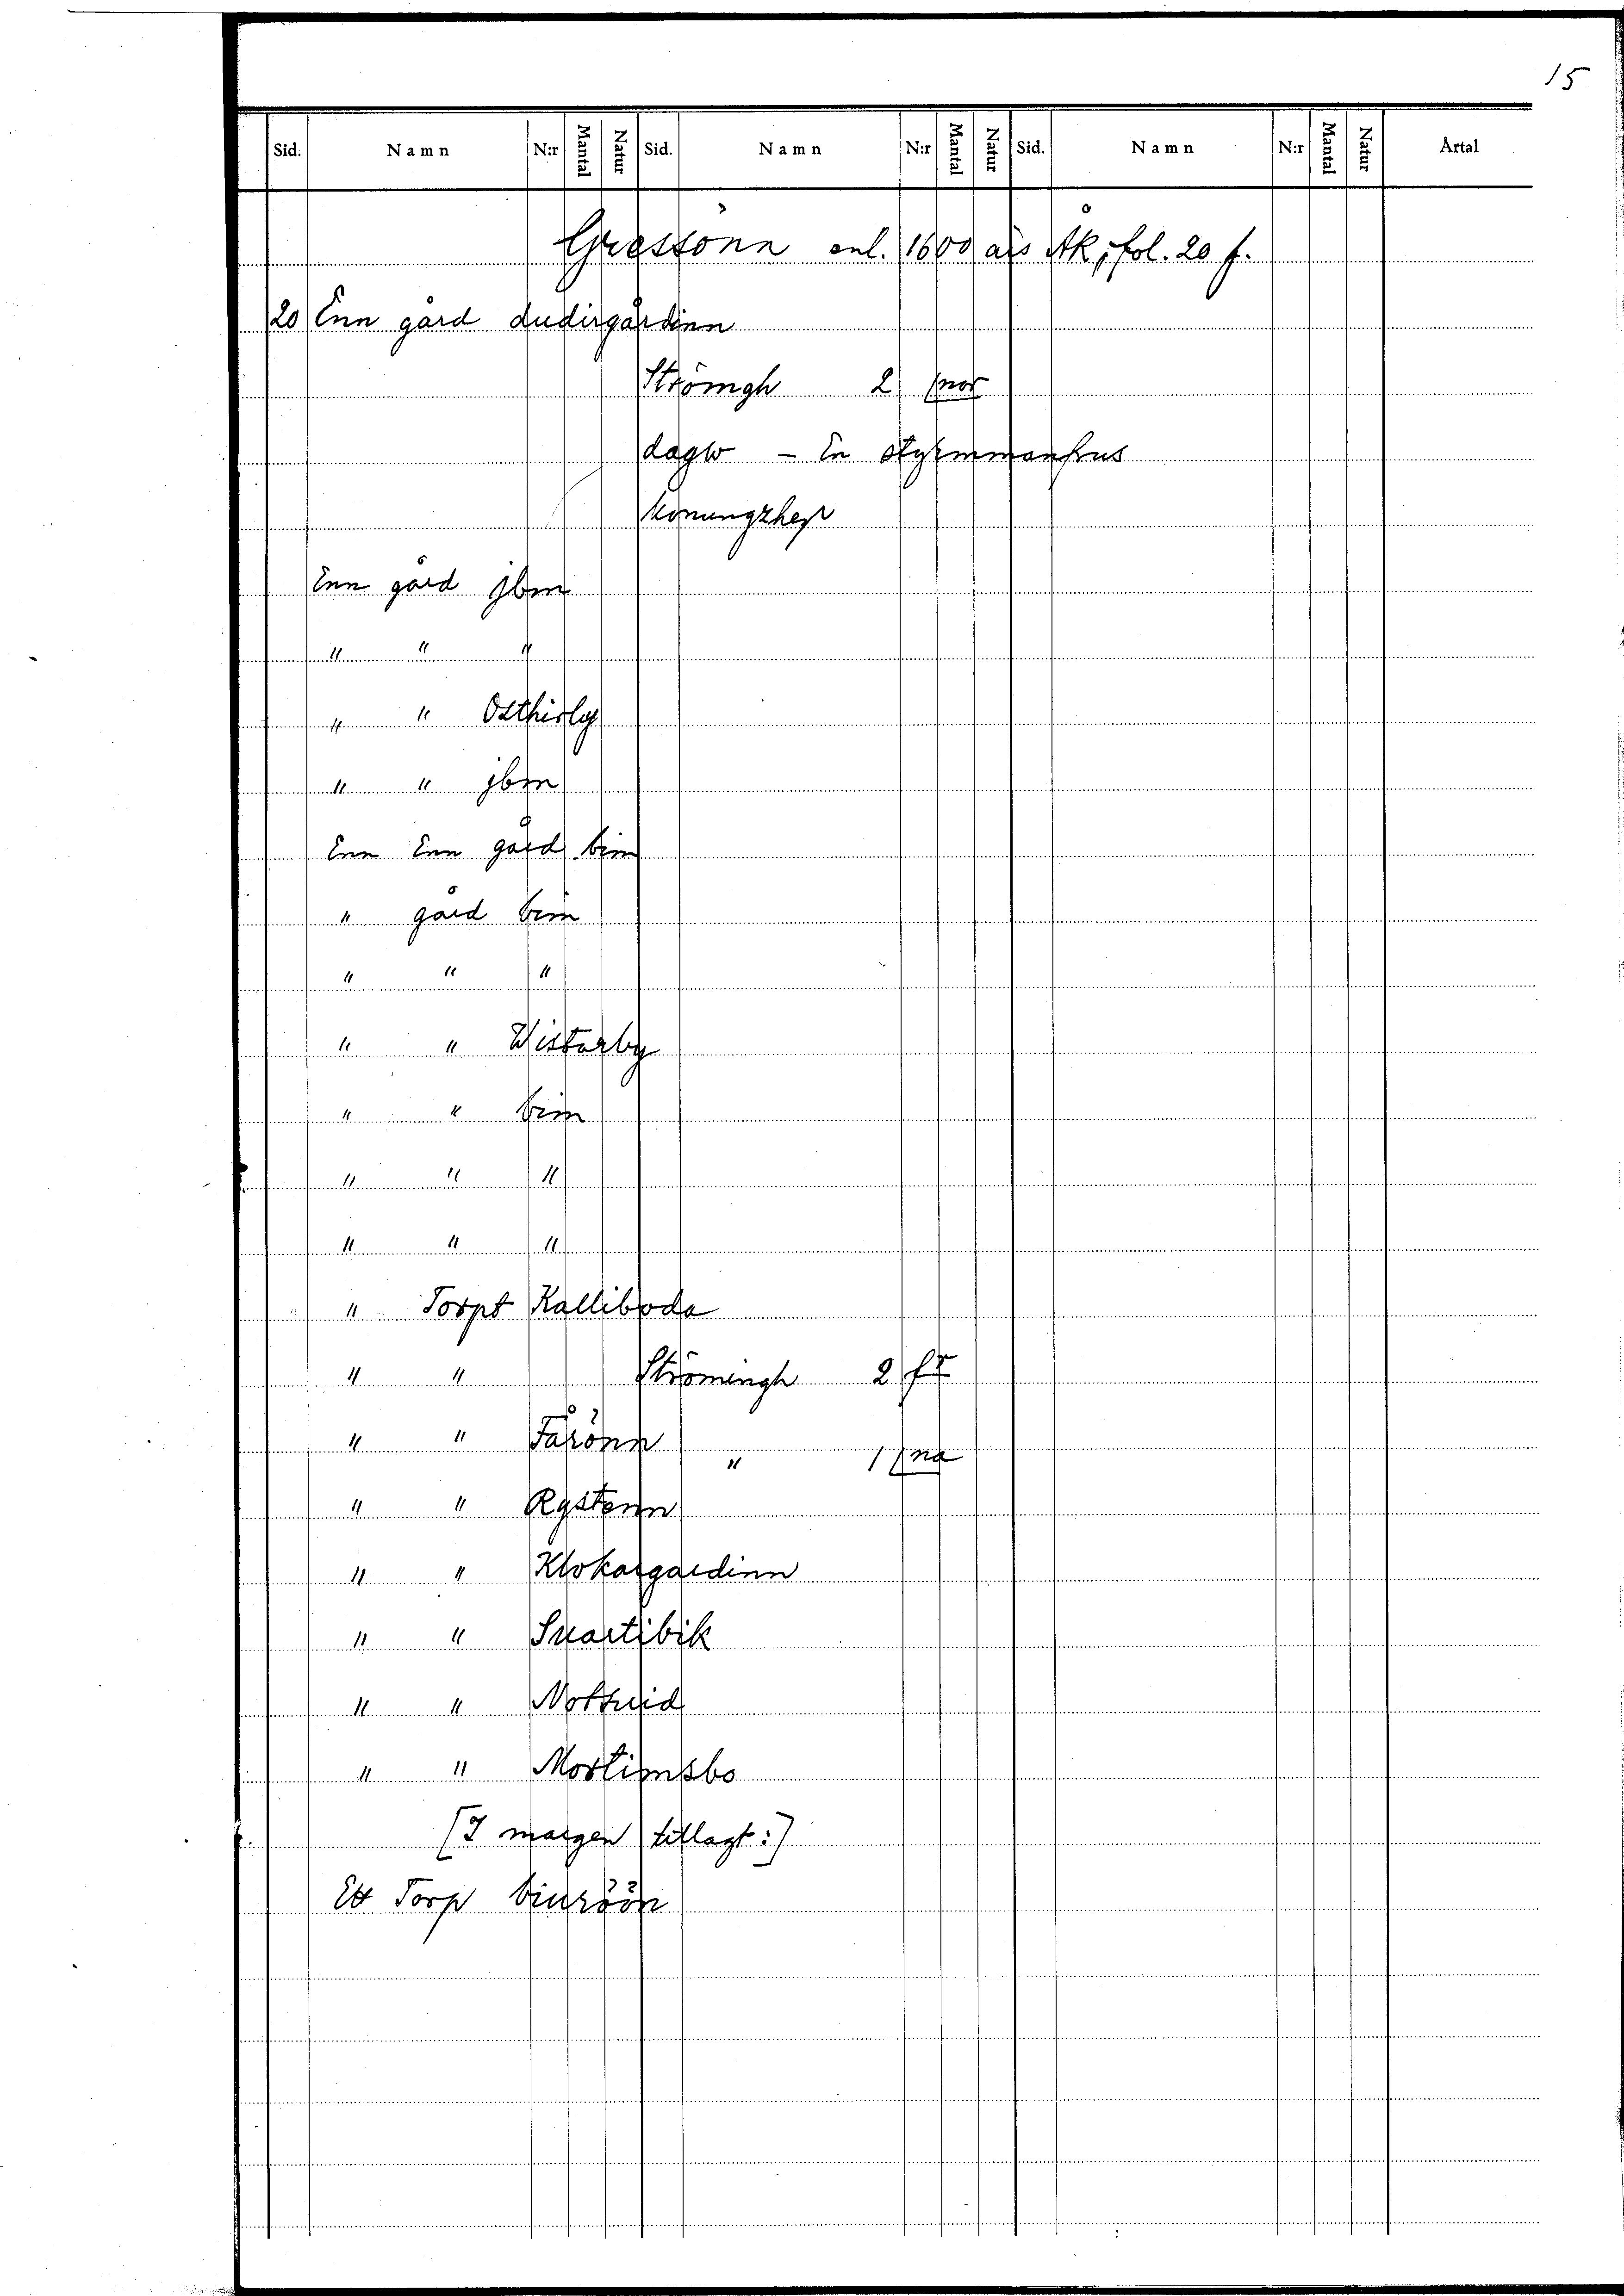 15
Sid. Namn N:r Mantal Natur Sid. Namn N:r Mantal Natur Sid. Namn N:r Mantal Natur Årtal
Gressönn enl. 1600 års ÅK, fol. 20 f.
20 Enn gård dudirgårdinn
Strömgh 2
dagw - En
Enn gård jbm
" " "
" " Osthirby
" " jbm
Enn Enn gård bim
" gård bim
" " "
" " Wistarby
" " bim
" " "
" " "
" Torpt Kalliboda
" " Strömingh 2
" " Fårönn " 1
" " Rystenn
" " Klokargardinn
" " Suartibik
" " Notuid
" " Mortimsbo
[I margen tillagt:]
Ett Torp biuröön